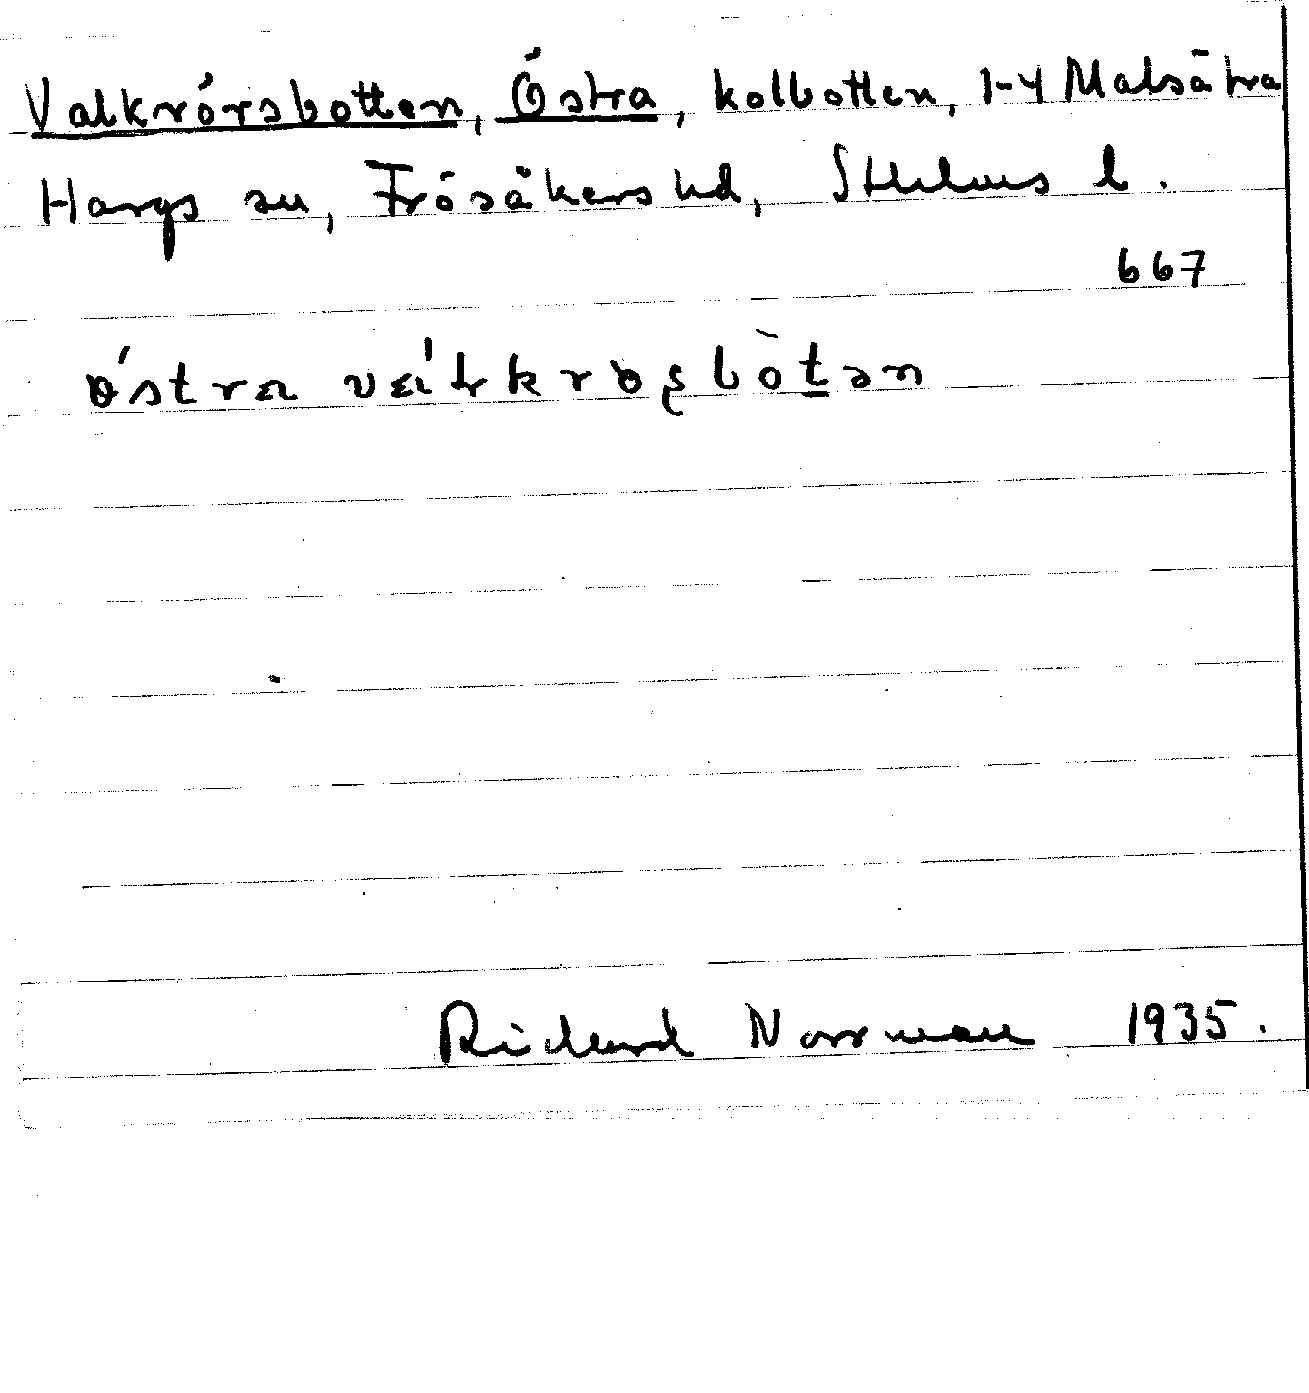 Valkrörsbotten, Östra, kolbotten, 1-4 Malsätra
Hargs sn, Frösåkers hd, Sthlms l.
667
Richard Norrman 1935.